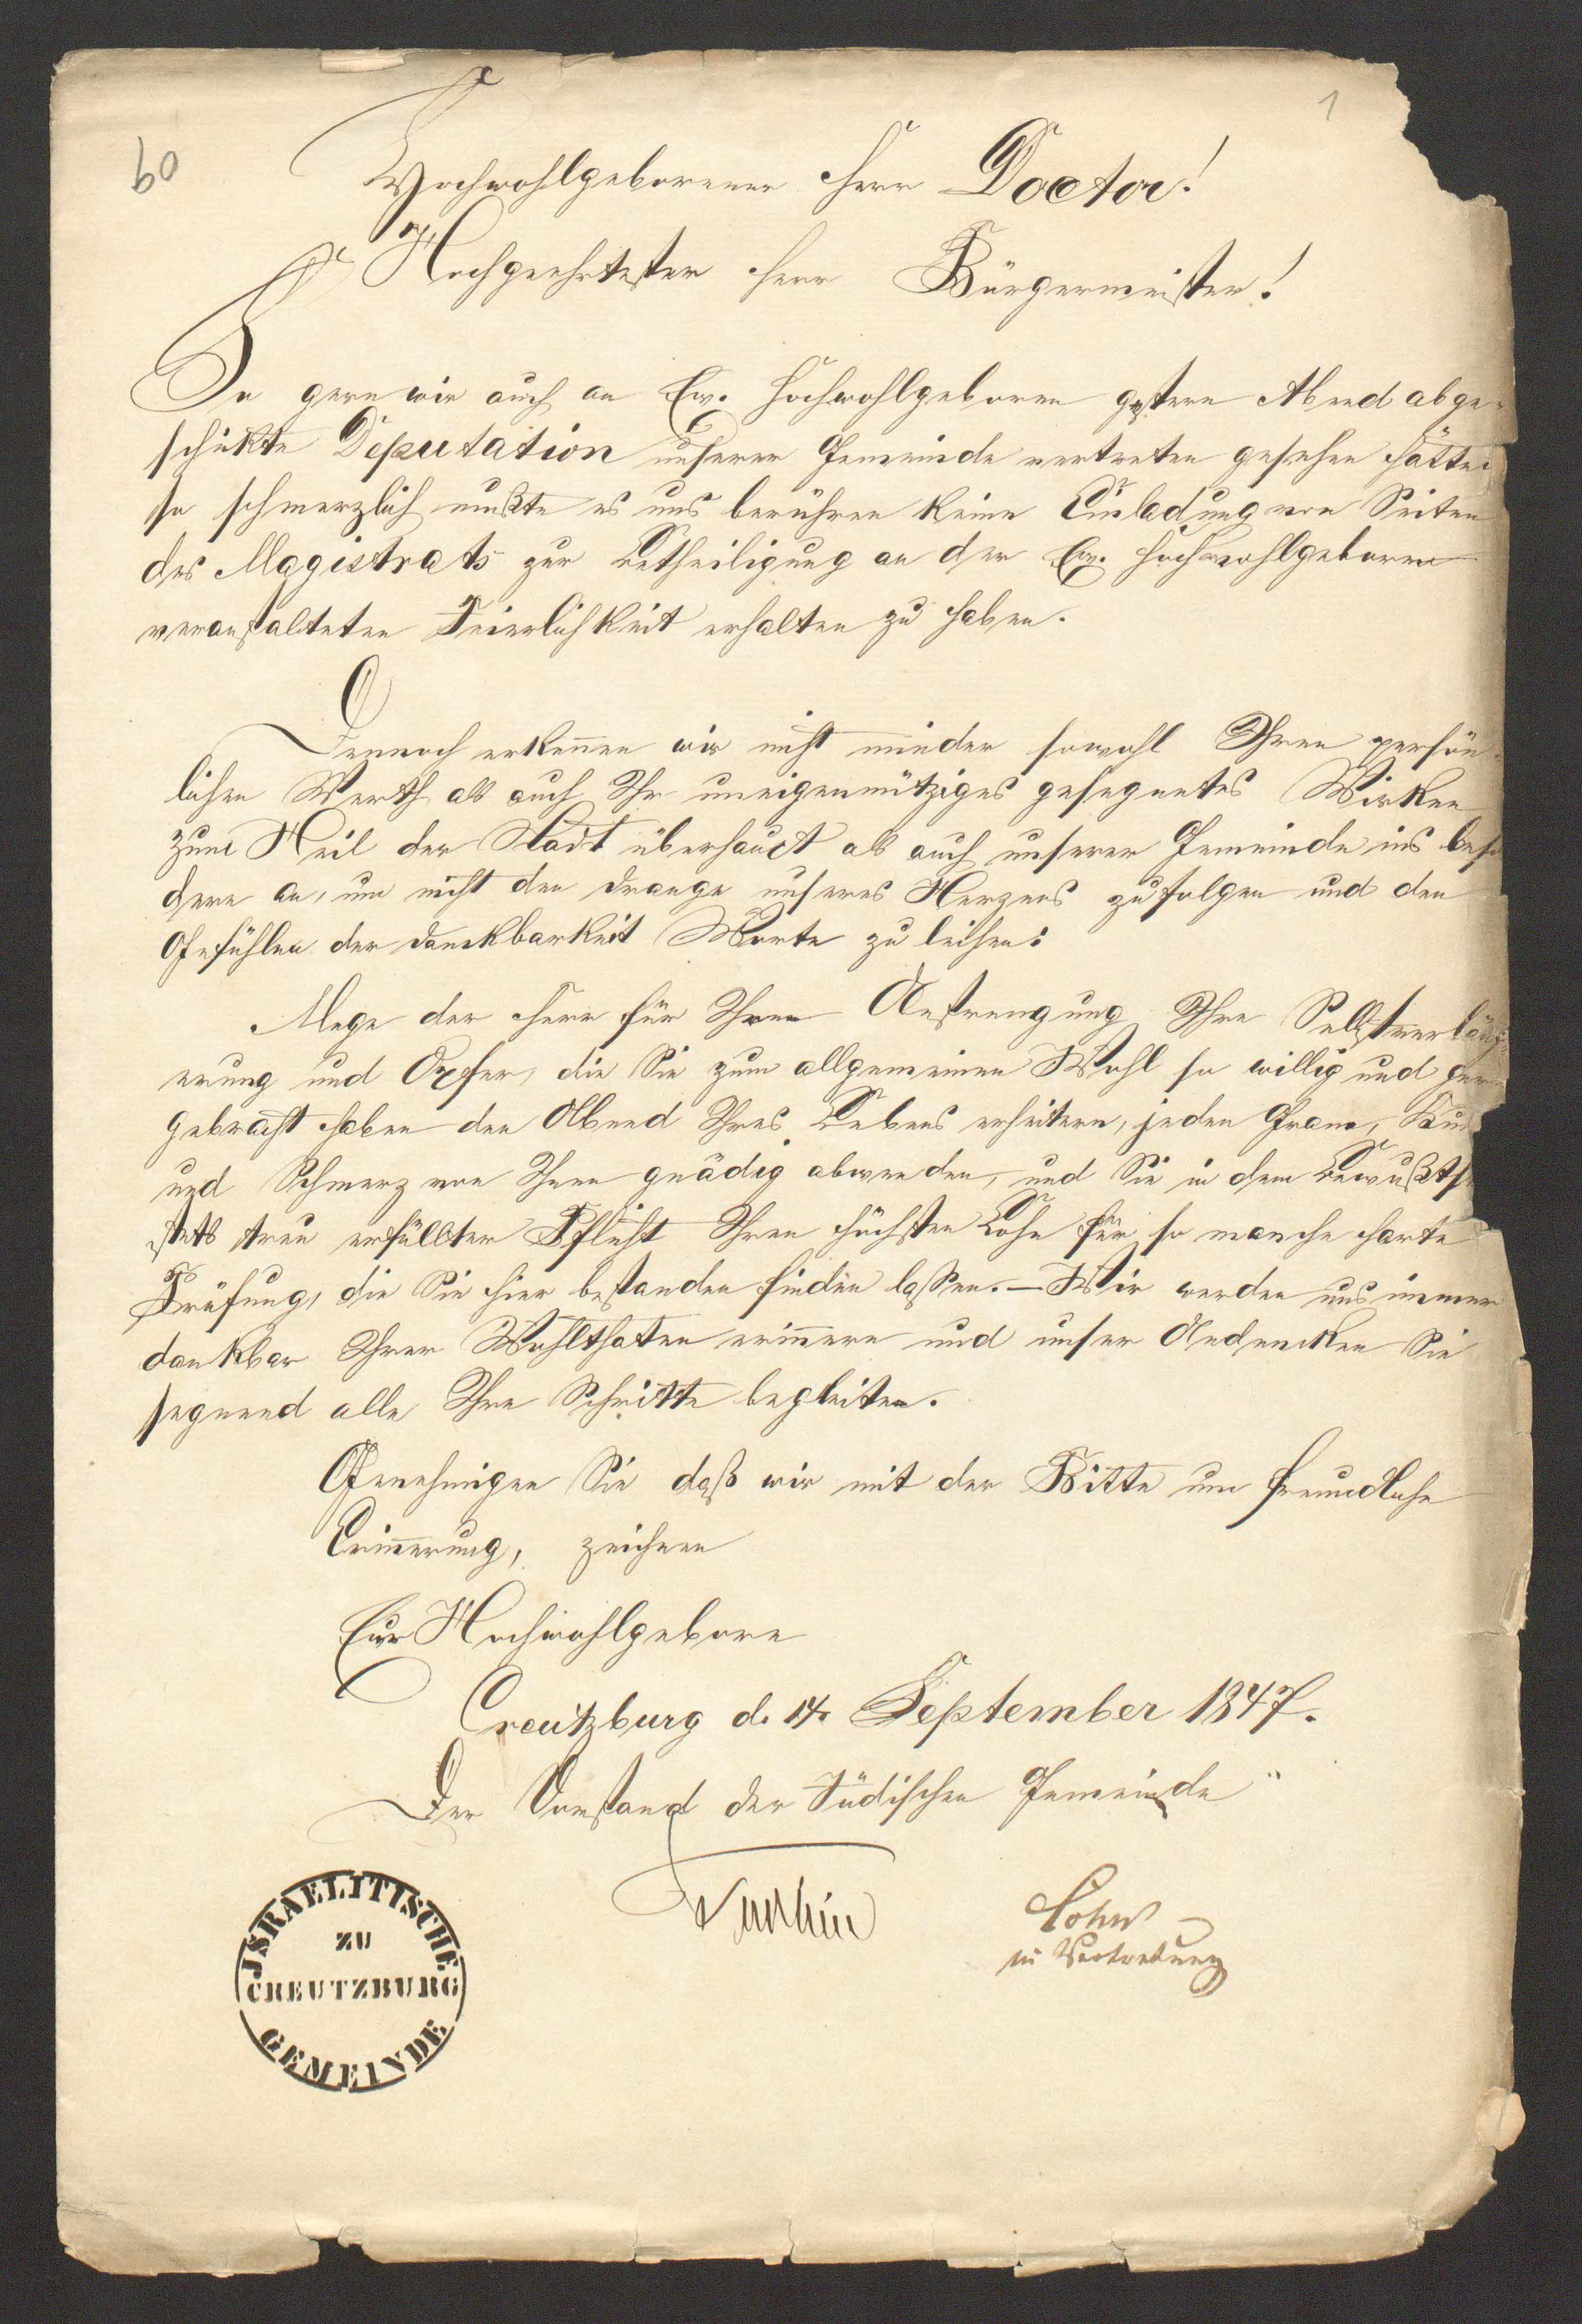 60
1
Hochwohlgeborener Herr Doctor!
Hochgeehrtester Herr Bürgermeister!
So gern wir auch an Ew. Hochwohlgeboren gestern Abend abge-
schikte Deputation unserer Gemeinde vertreten gesehen hätten
so schmerzlich mußte es uns berühren keine Einladung von Seiten
des Magistrats zur Betheiligung an der Ew. Hochwohlgeboren
veranstalteten Feierlichkeit erhalten zu haben.
Dennoch erkennen wir nicht minder sowohl Ihren persön-
lichen Werth als auch Ihr uneigennütziges gesegnetes Wirken
zum Heil der Stadt überhaupt als auch unserer Gemeinde ins beso
dere an, um nicht den Drange unseres Herzens zu folgen und den
Gefühlen der Dankbarkeit Worte zu leihen:
Mege der Herr für Ihren Anstrengung Ihre Selbstverläug-
nung und Opfer, die Sie zum allgemeinen Wohl so willig und gern
gebracht haben den Abend Ihres Lebens erheitern, jeden Gram,
und Schmerz von Ihnen gnädig abwenden, und Sie in dem Bewußtse
stets treu erfüllter Pflicht Ihren höchsten Lohn für so manche harte
Prüfung, die Sie hier bestanden finden lassen. – Wir werden uns immer
dankbar Ihrer Wohlthaten erinnern und unser Andencken Sie
segnend alle Ihre Schritte begleiten.
Genehmigen Sie daß wir mit der Bitte um freundliche
Erinnerung, zeichnen
Eur Hochwohlgeboren
Creutzburg d. 14. September 1847.
Der Vorstand der Jüdischen Gemeinde
Cohn
in Vertretung
JSRAELITISCHE
ZU
CREUTZBURG
GEMEINDE